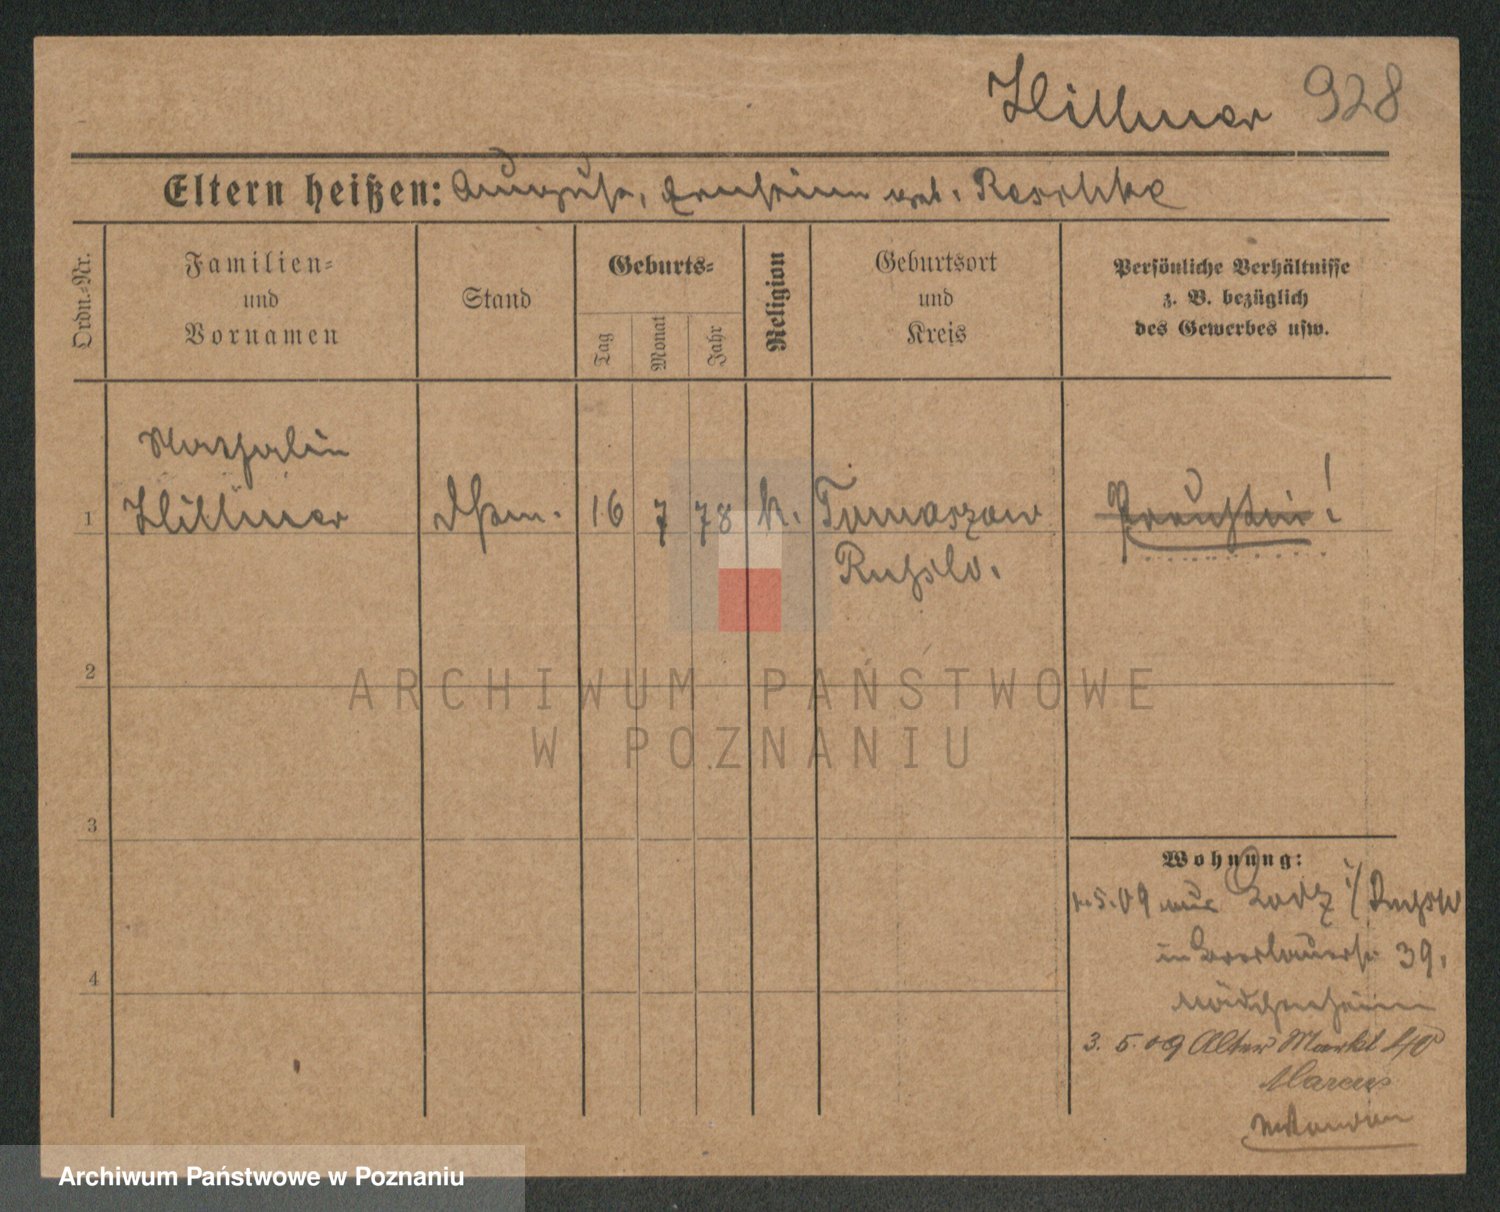 Hillmer 928
Eltern heißen: August, geb. Reschke
Ordn.-Nr.
Familien-
und
Vornamen
Stand
Geburts-
Tag
Monat
Jahr
Religion
Geburtsort
und
Kreis
Persönliche Verhältnisse
z. B. bezüglich
des Gewerbes usw.
1 Hillmer 16 7 78 k. Tomaszow
Russld.
2
3
4
Wohnung:
.5.09 aus Lodz i/Russld
in 39.
Mädchenheim
3. 5. 09 Alter Markt
Marcus
ARCHIWUM PAŃSTWOWE
W POZNANIU
Archiwum Państwowe w Poznaniu